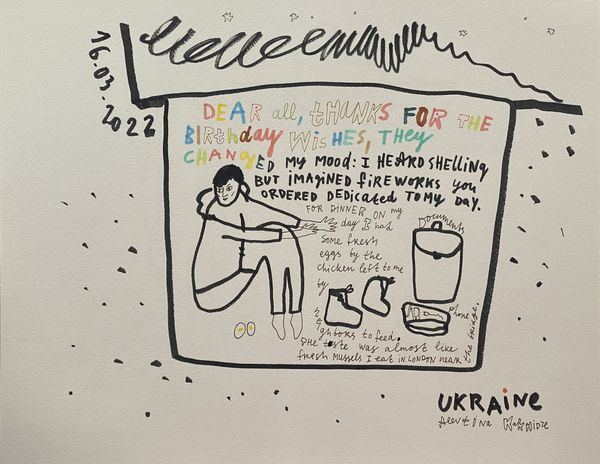 16.03.2022
DEAR all, thUNKS FOR THE
BIRthday WiSHES, THEY
CHANGED MY MOOD: I HEARD SHELLING
BUT iMAGiNED fiREWORKS YOU
ORDERED DEDiCATED TO MY DAY.
FOR DiNNER ON my
day I had
some fresh
eggs by the
chicken left to me
by
neighbors to feed.
THE taste was almost like
fresh mussels I eat iN LONDON NEAR
the bridge.
Documents
Phone
UKRAiNE
Alevtina KakHidze